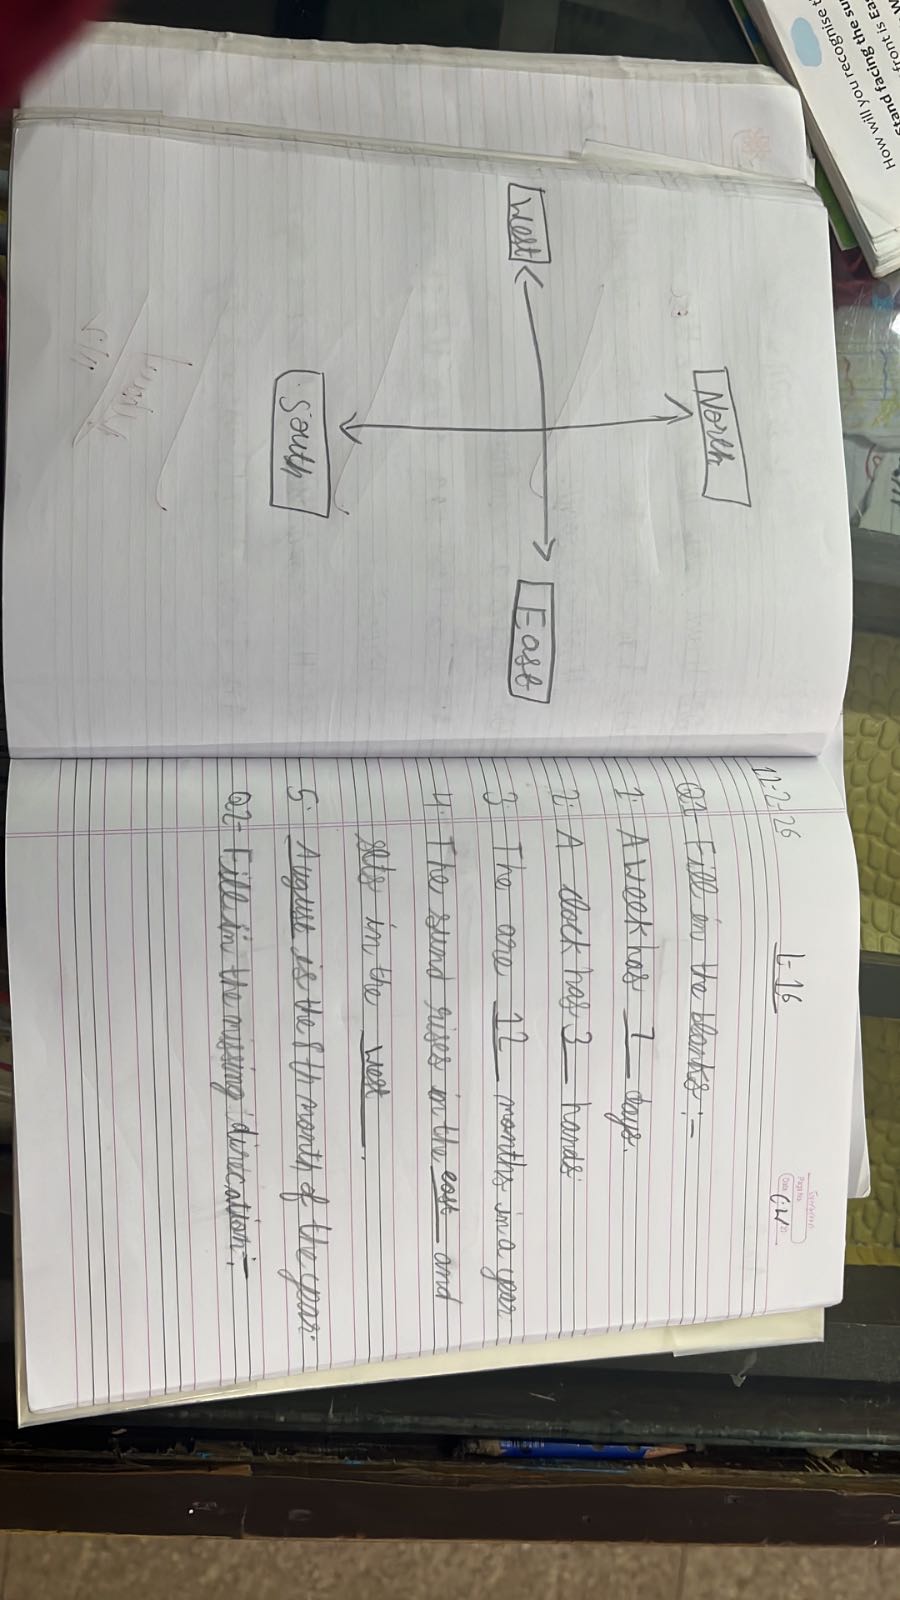 North
West
East
South
12-2-26
L-16
C.W
Q1- Fill in the blanks:-
1. A week has 7 days.
2. A clock has 3 hands.
3. The are 12 months in a yer
4. The sund rises in the east and
sets in the west.
5. August is the 8th month of the year.
Q2- Fill in the missing direcation:-
How will you recognise
stand facing the su
front is Ea